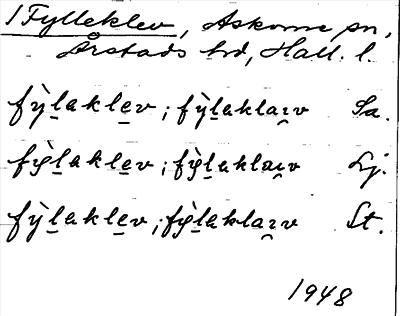 1 Fylleklev, Askome sn,
Årstads hd, Hall. l.
fỳl̲akle̲v ; fỳl̲aklaɪ̯v Sa.
fỳl̲akle̲v ; fỳl̲aklaɪ̯v Lj.
fỳl̲akle̲v ; fỳl̲aklaɪ̯v St.
1948